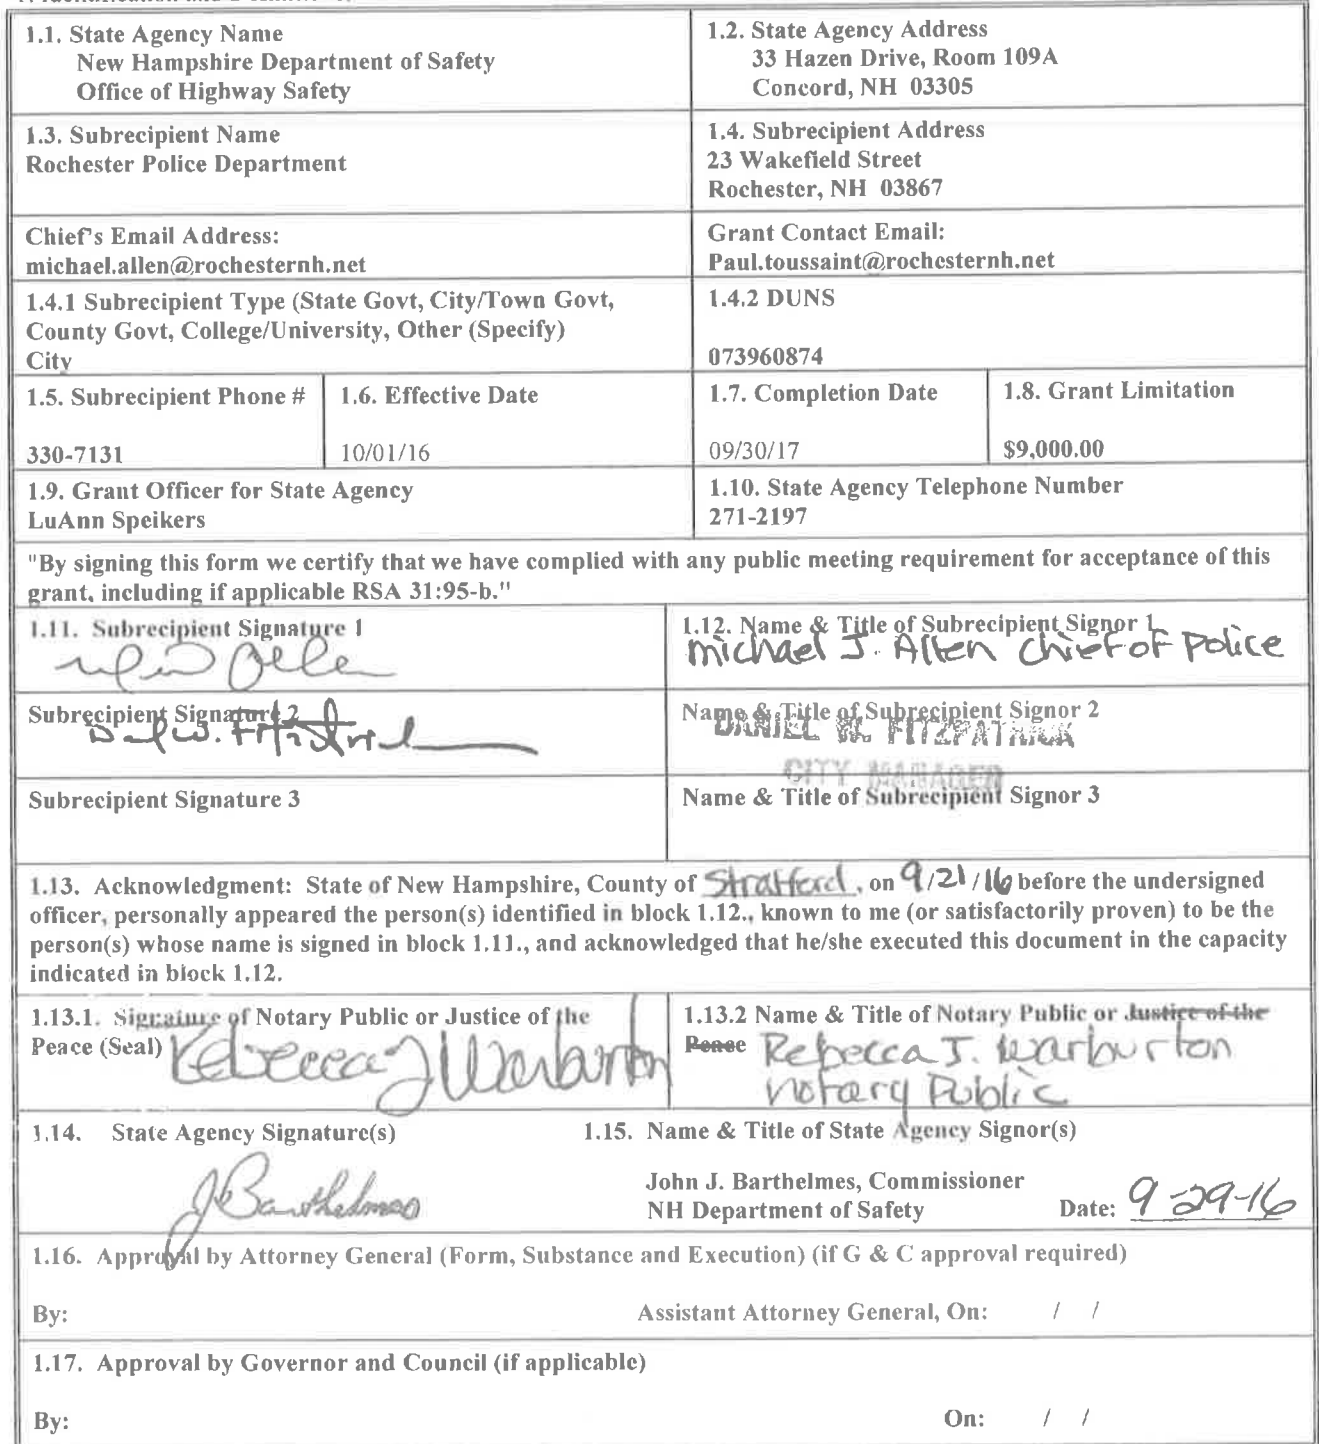 1.1. State Agency Name
New Hampshire Department of Safety
Office of Highway Safety
1.2. State Agency Address
33 Hazen Drive, Room 109A
Concord, NH 03305
1.3. Subrecipient Name
Rochester Police Department
1.4. Subrecipient Address
23 Wakefield Street
Rochester, NH 03867
Chief's Email Address:
michael.allen@rochesternh.net
Grant Contact Email:
Paul.toussaint@rochesternh.net
1.4.1 Subrecipient Type (State Govt, City/Town Govt,
County Govt, College/University, Other (Specify)
City
1.4.2 DUNS
073960874
1.5. Subrecipient Phone #
330-7131
1.6. Effective Date
10/01/16
1.7. Completion Date
09/30/17
1.8. Grant Limitation
$9,000.00
1.9. Grant Officer for State Agency
LuAnn Speikers
1.10. State Agency Telephone Number
271-2197
"By signing this form we certify that we have complied with any public meeting requirement for acceptance of this
grant, including if applicable RSA 31:95-b."
1.11. Subrecipient Signature 1
1.12. Name & Title of Subrecipient Signor 1
Michael J. Allen Chief of Police
Subrecipient Signature 2
Name & Title of Subrecipient Signor 2
DANIEL W. FITZPATRICK
CITY MANAGER
Subrecipient Signature 3
Name & Title of Subrecipient Signor 3
1.13. Acknowledgment: State of New Hampshire, County of Strafford, on 9/21/16 before the undersigned
officer, personally appeared the person(s) identified in block 1.12., known to me (or satisfactorily proven) to be the
person(s) whose name is signed in block 1.11., and acknowledged that he/she executed this document in the capacity
indicated in block 1.12.
1.13.1. Signature of Notary Public or Justice of the
Peace (Seal) Rebecca J Warburton
1.13.2 Name & Title of Notary Public or Justice of the
Peace Rebecca J. Warburton
Notary Public
1.14. State Agency Signature(s)
JBarthelmes
1.15. Name & Title of State Agency Signor(s)
John J. Barthelmes, Commissioner
NH Department of Safety Date: 9-29-16
1.16. Approval by Attorney General (Form, Substance and Execution) (if G & C approval required)
By: Assistant Attorney General, On: / /
1.17. Approval by Governor and Council (if applicable)
By: On: / /